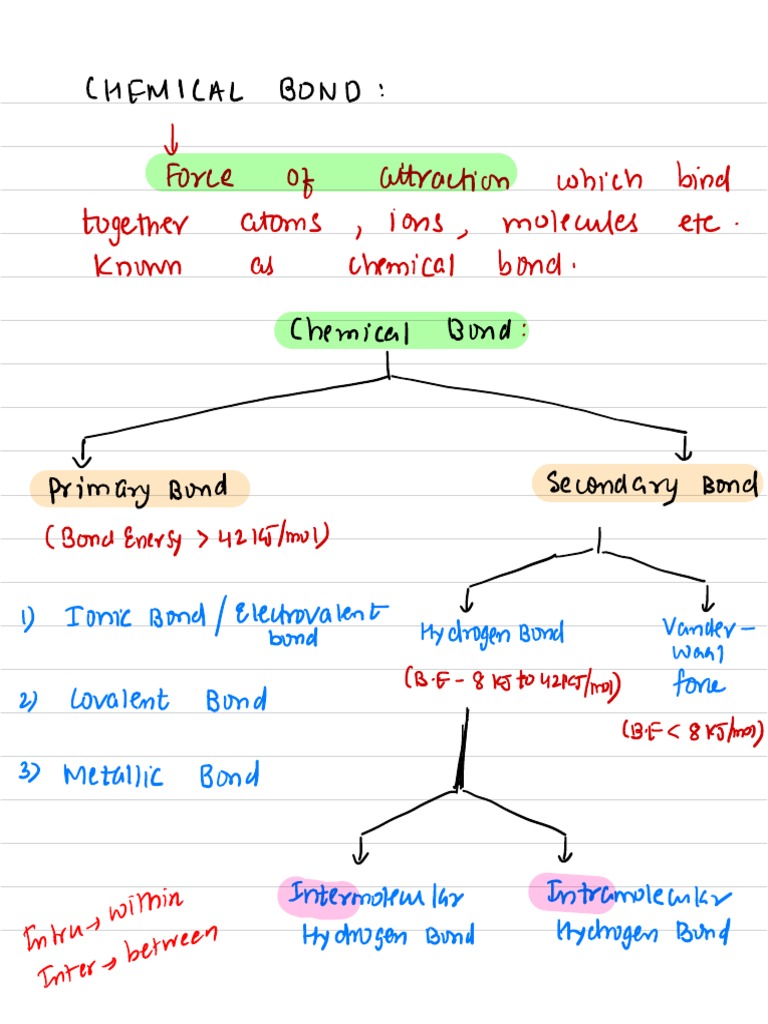 CHEMICAL BOND:
Force of attraction which bind
together atoms, ions, molecules etc.
known as chemical bond.
Chemical Bond:
Primary Bond
Secondary Bond
(Bond Energy > 42 KJ/mol)
1) Ionic Bond / Electrovalent
bond
Hydrogen Bond
Vander-
waal
force
(B.E - 8 KJ to 42 KJ/mol)
(B.E < 8 KJ/mol)
2) Covalent Bond
3) Metallic Bond
Intermolecular
Hydrogen Bond
Intramolecular
Hydrogen Bond
Intra → within
Inter → between